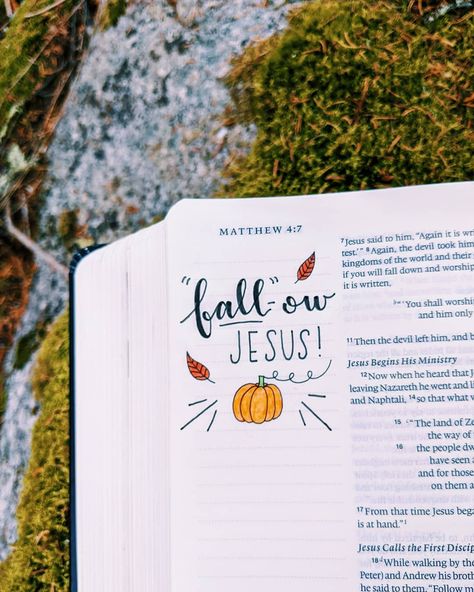 MATTHEW 4:7
"fall"-ow
JESUS!
7Jesus said to him, "Again it is wri
test.'" 8Again, the devil took him
kingdoms of the world and their
if you will fall down and worship
it is written,
"'You shall worship
and him only
11Then the devil left him, and be
Jesus Begins His Ministry
12Now when he heard that J
leaving Nazareth he went and l
and Naphtali, 14so that what w
15 "The land of Ze
the way of
16 the people dw
have seen a
and for those
on them a
17From that time Jesus bega
is at hand."
Jesus Calls the First Discip
18While walking by the
Peter) and Andrew his broth
he said to them, "Follow m